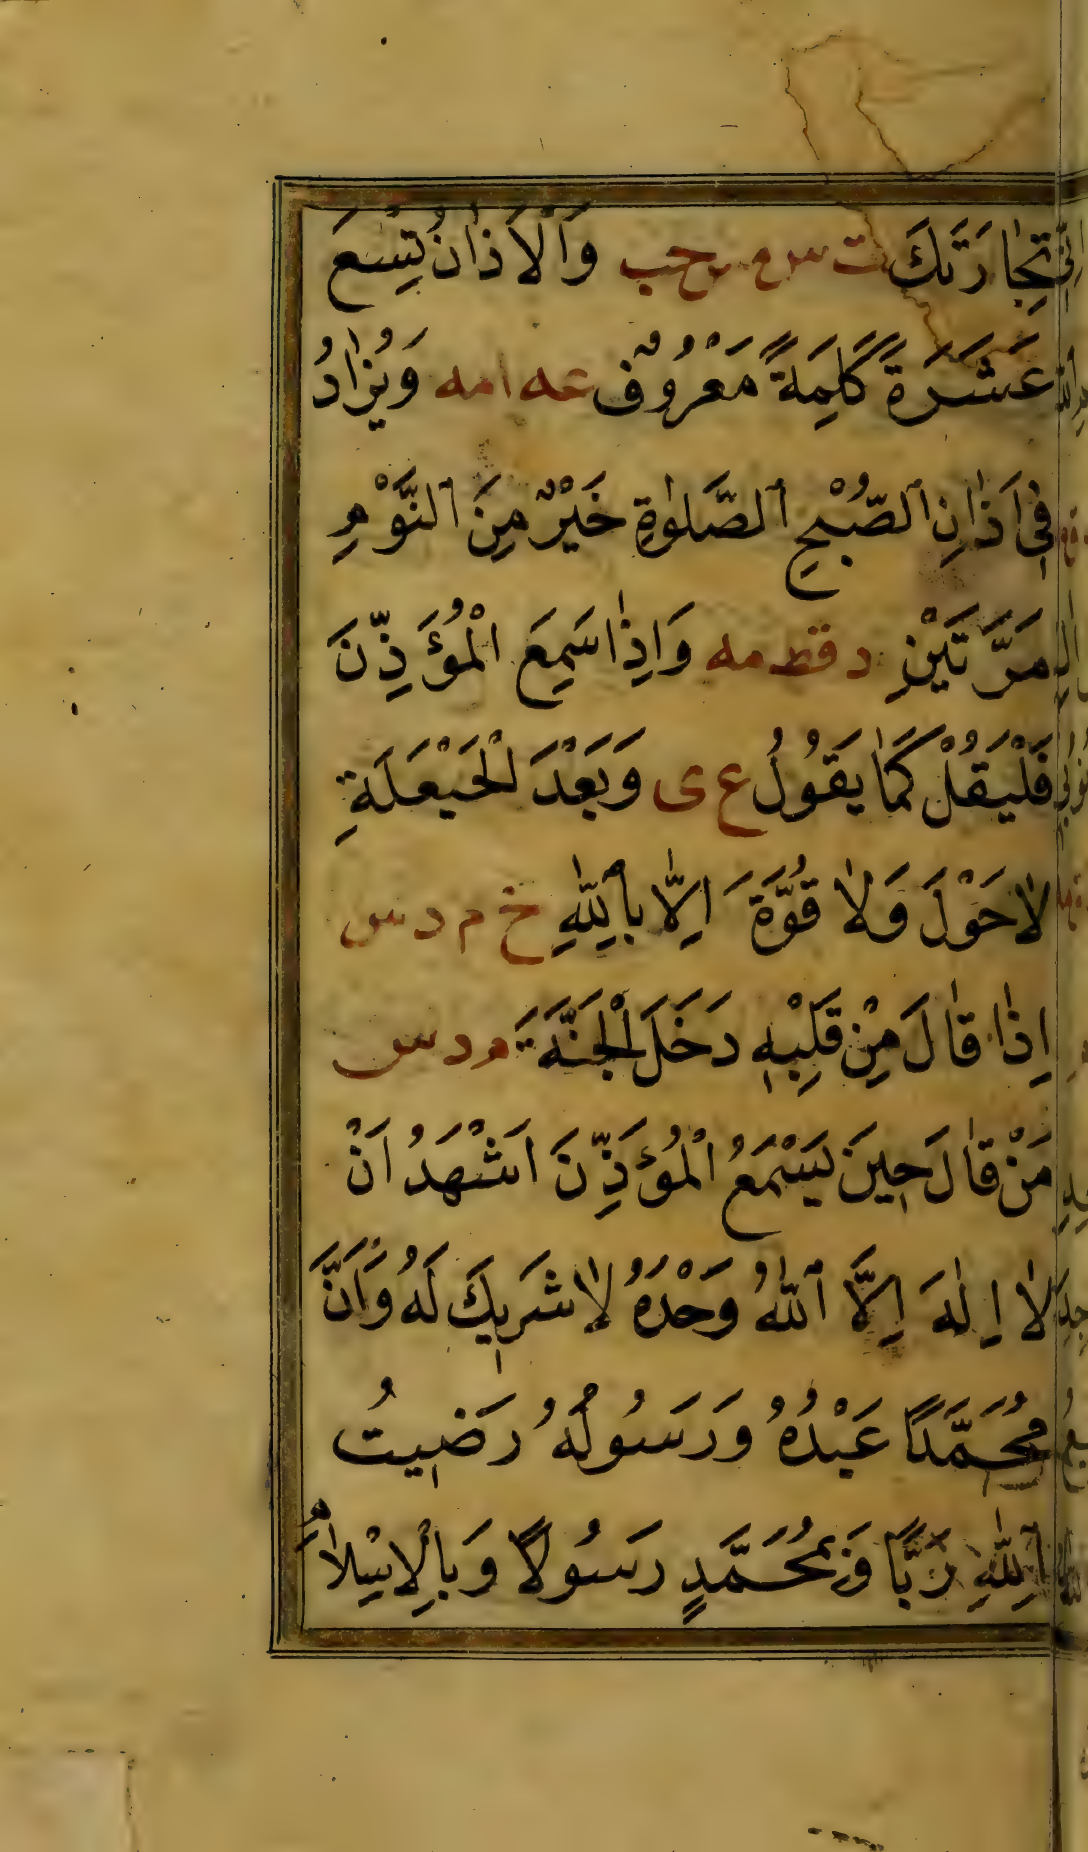 تِجَارَتَكَ ت س م س حب وَالْاَذَانُ تِسْعَ
عَشَرَةَ كَلِمَةً مَعْرُوفٌ عه امه وَيُزَادُ
فِي اَذَانِ الصُّبْحِ الصَّلٰوةِ خَيْرٌ مِنَ النَّوْمِ
مَرَّتَيْنِ د قط مه وَاِذَا سَمِعَ الْمُؤَذِّنَ
فَلْيَقُلْ كَمَا يَقُولُ ع ى وَبَعْدَ لْحَيْعَلَةِ
لَاحَوْلَ وَلَا قُوَّةَ اِلَّا بِاللّٰهِ خ م د س
اِذَا قَالَ مِنْ قَلْبِهِ دَخَلَ الْجَنَّةَ م د س
مَنْ قَالَ حِينَ يَسْمَعُ الْمُؤَذِّنَ اَشْهَدُ اَنْ
لَا اِلٰهَ اِلَّا اللّٰهُ وَحْدَهُ لَا شَرِيكَ لَهُ وَاَنَّ
مُحَمَّدًا عَبْدُهُ وَرَسُولُهُ رَضِيتُ
بِاللّٰهِ رَبًّا وَبِمُحَمَّدٍ رَسُولًا وَبِالْاِسْلَامِ